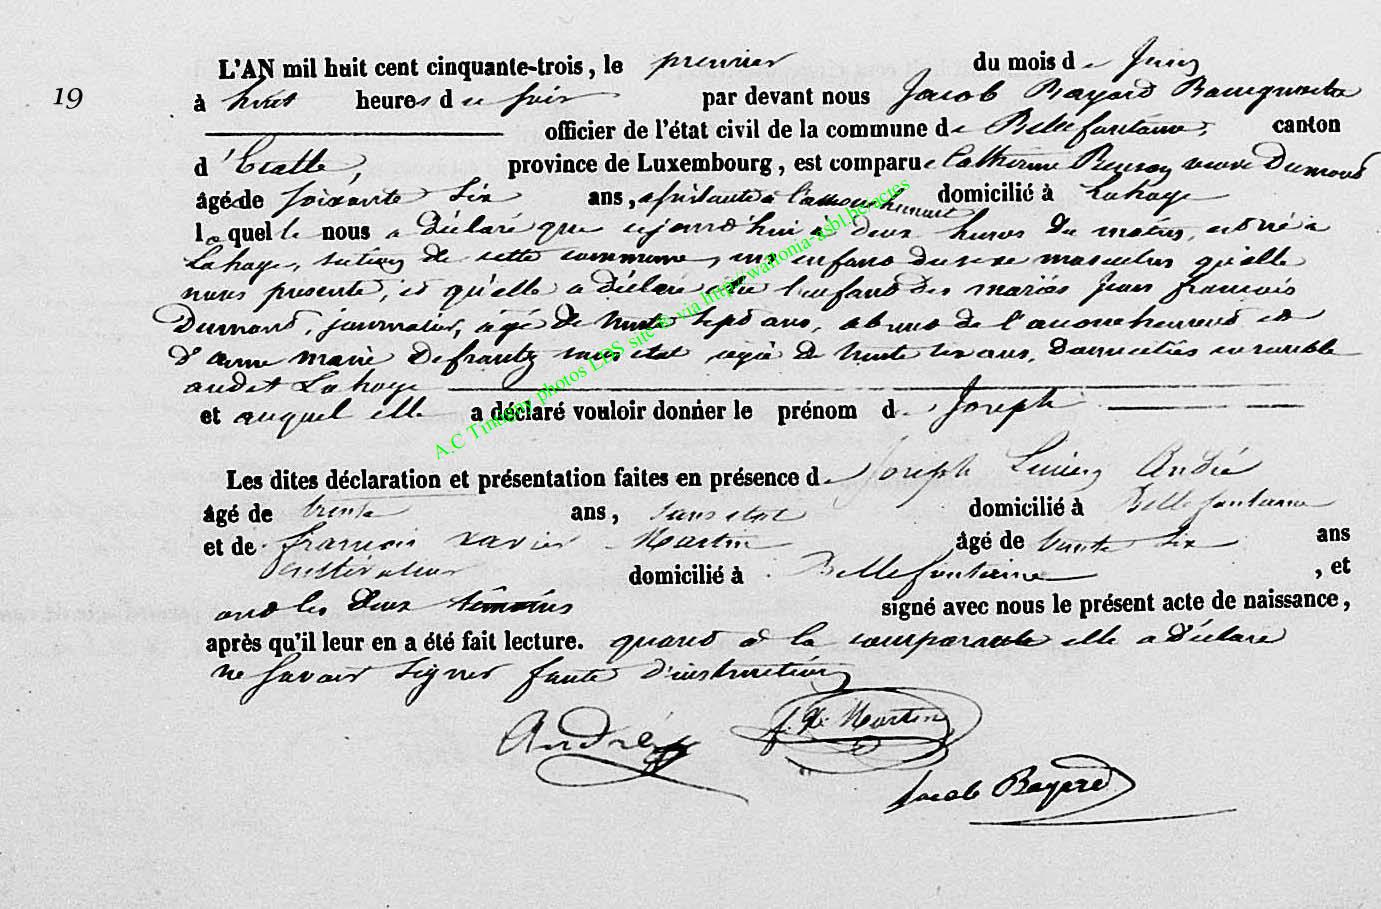 19
L'AN mil huit cent cinquante-trois, le premier du mois de Juin
à huit heures du soir par devant nous Jacob Bayard Bourgmestre
officier de l'état civil de la commune de Bellefontaine, canton
d'Etalle, province de Luxembourg, est comparue Catherine veuve Dumond
âgée de soixante six ans, assistante à l'accouchement domicilié à Lahage
laquelle nous a déclaré que cejourd'hui à deux heures du matin, est né à
Lahage, section de cette commune, un enfant du sexe masculin qu'elle
nous presente, et qu'elle a déclaré être l'enfant des mariés Jean françois
Dumond, journalier, agé de trente sept ans, absent de l'accouchement et
d'anne marie Defrantz sans état agée de trente six ans, domiciliés ensemble
audit Lahage
et auquel elle a déclaré vouloir donner le prénom de Joseph
Les dites déclaration et présentation faites en présence de Joseph Lucien André
âgé de trente ans, sans etat domicilié à Bellefontaine
et de françois xavier Martin âgé de trente six ans
cultivateur domicilié à Bellefontaine, et
ont les deux témoins signé avec nous le présent acte de naissance,
après qu'il leur en a été fait lecture. quand à la comparante elle a déclaré
ne savoir signer faute d'instruction
André
f. X. Martin
Jacob Bayard
A.C Tintigny photos LDS site @ via http://wallonia-asbl.be/actes